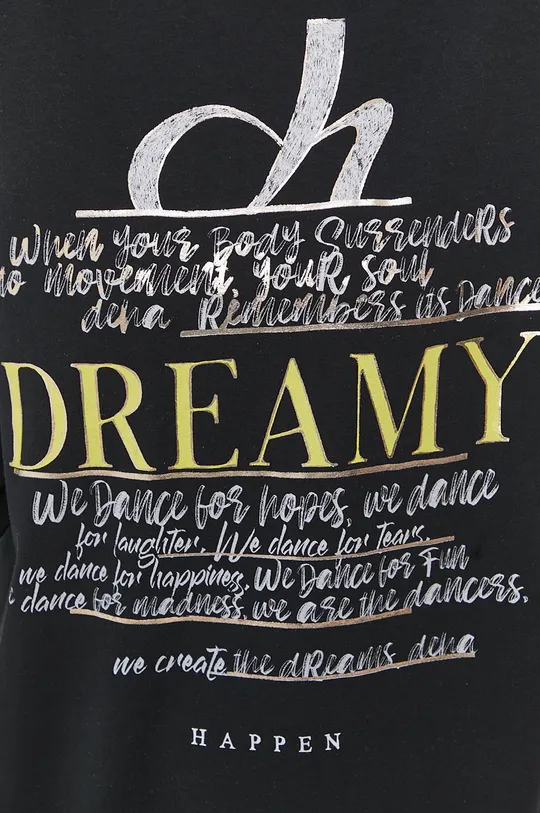 dh
When your Body Surrenders
to movement, your soul
dena Remembers its Dance
DREAMY
We Dance for hopes, we dance
for laughter. We dance for Tears.
we dance for happiness, We Dance for Fun
dance for madness, we are the dancers,
we create the dReams dena
HAPPEN